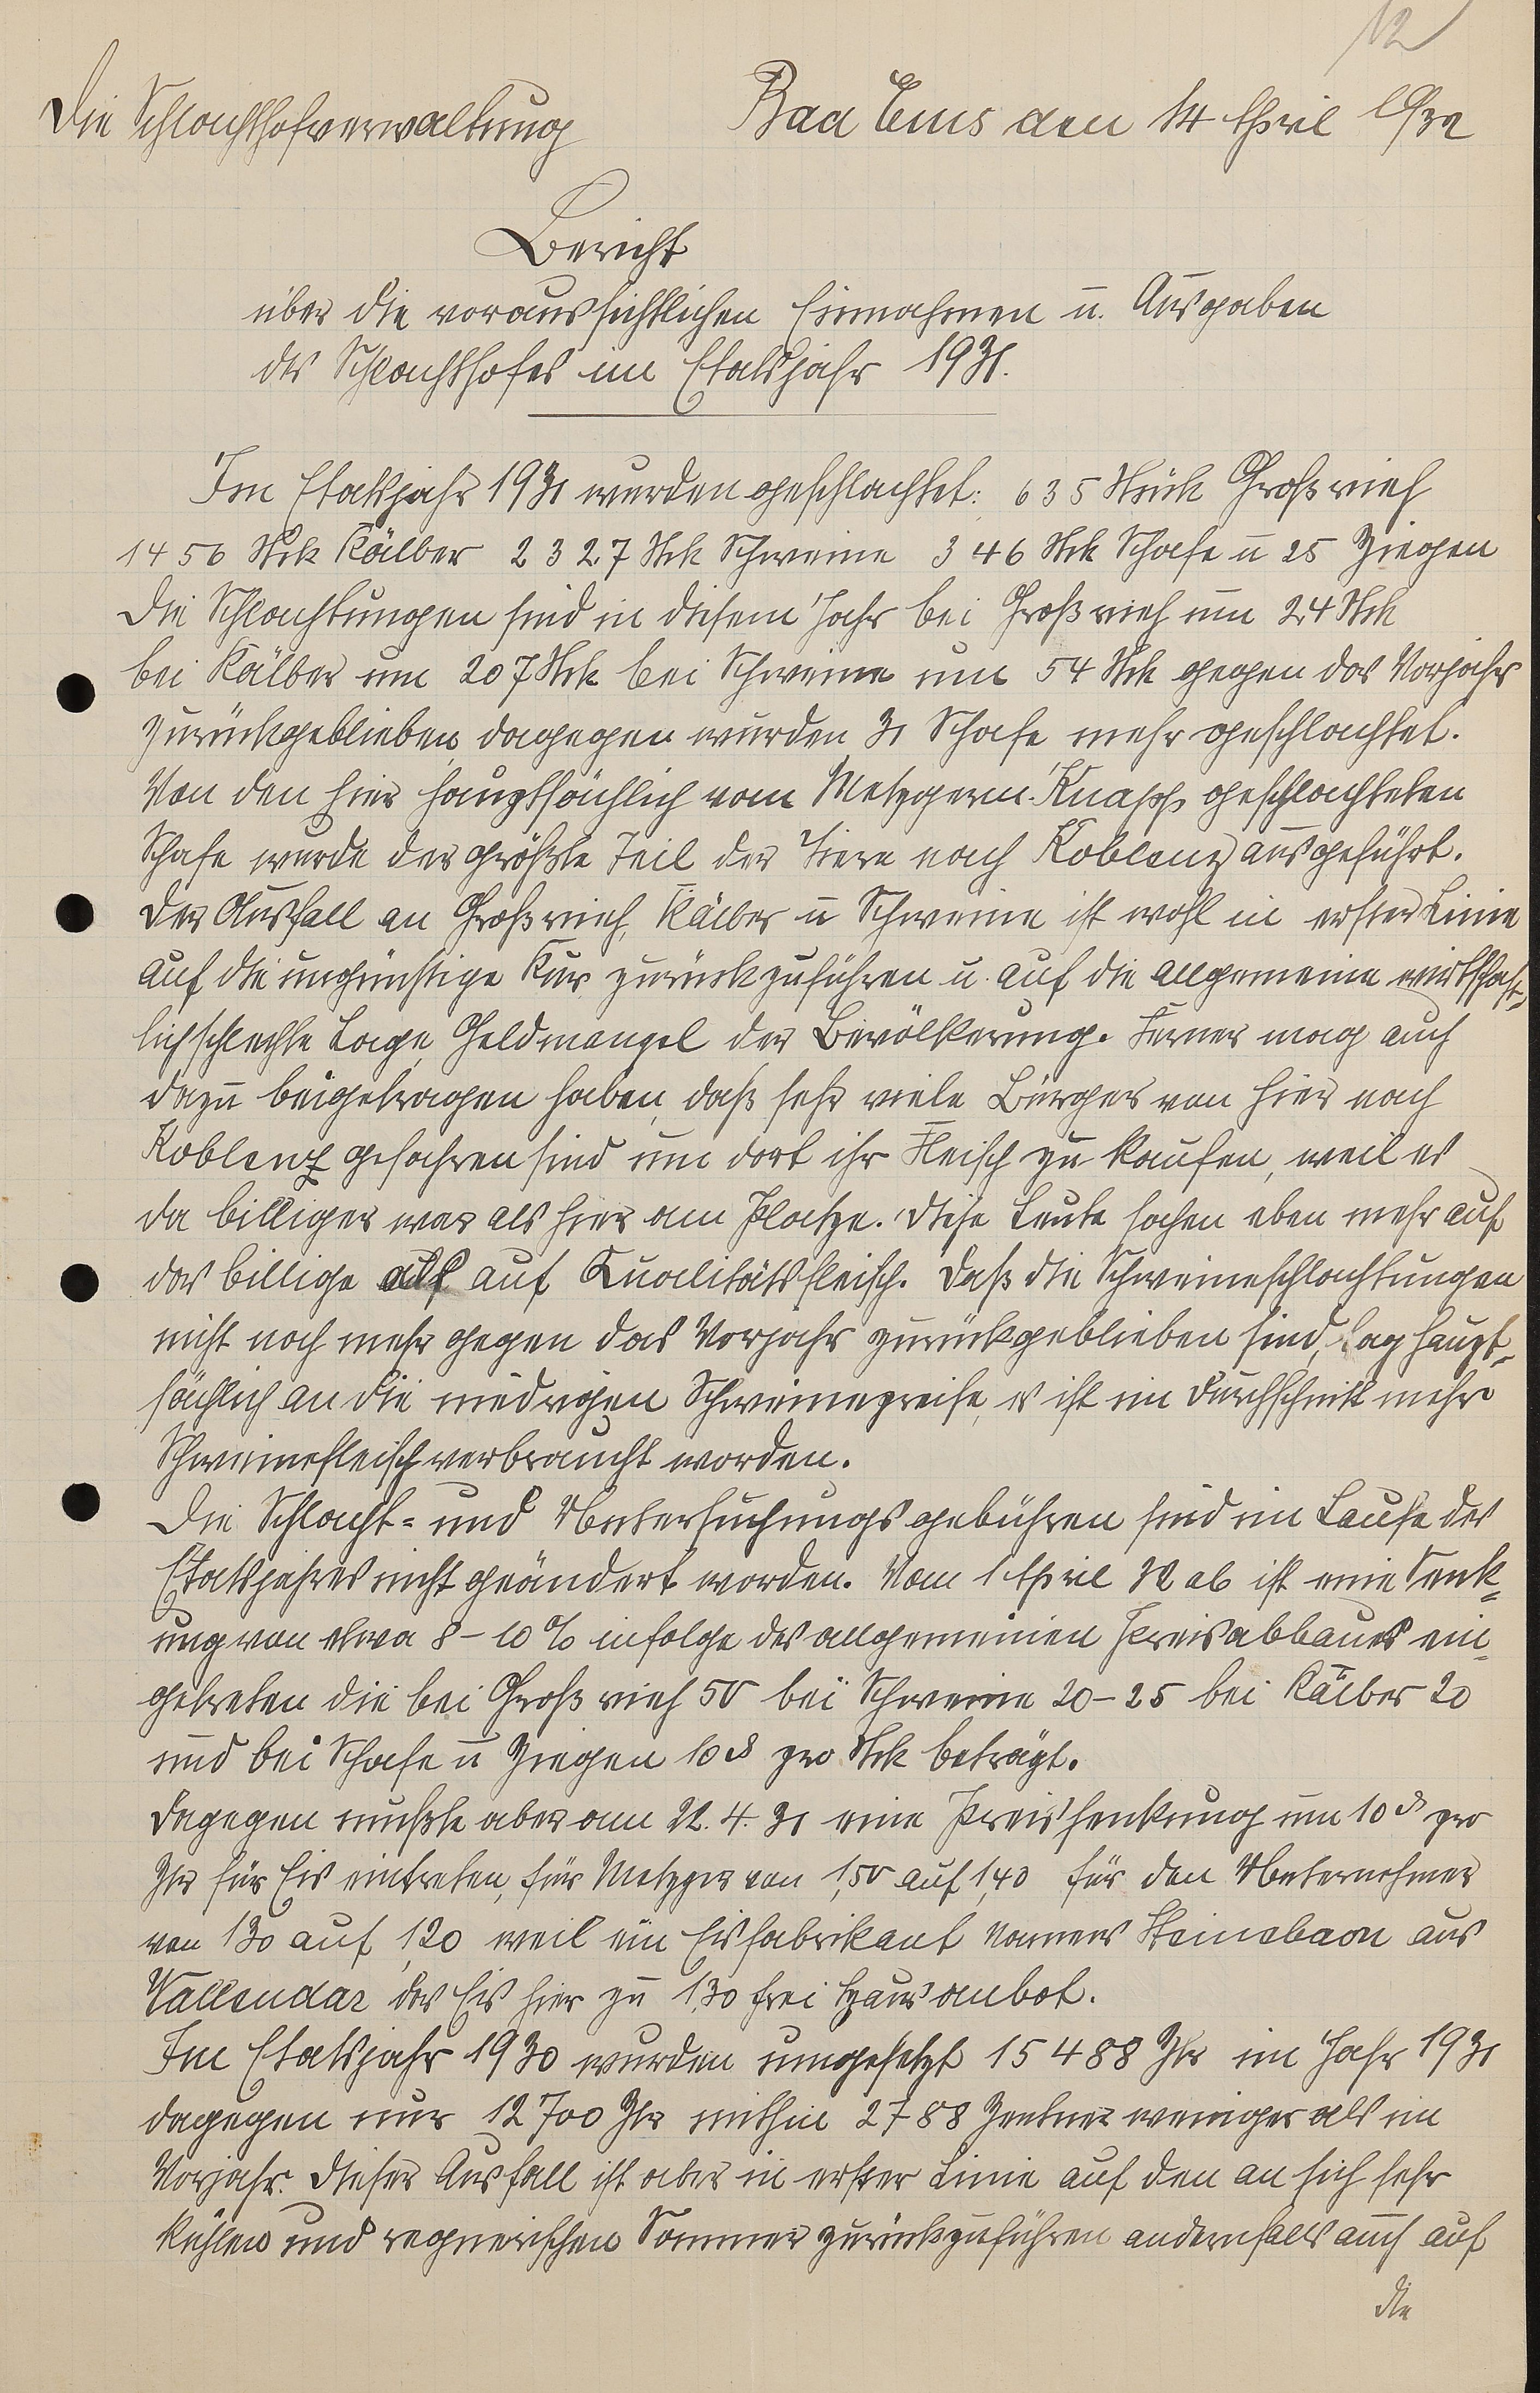 12
Die Schlachthofverwaltung Bad Ems den 14 April 1932
Bericht
über die voraussichtlichen Einnahmen u. Ausgaben
des Schlachthofes im Etatsjahr 1931.
Im Etatsjahr 1931 wurden geschlachtet: 635 Stück Großvieh
1456 Stck Kälber 2327 Stck Schweine 346 Stck Schafe u 25 Ziegen
Die Schlachtungen sind in diesem Jahr bei Großvieh um 24 Stck
bei Kälber um 207 Stck bei Schweine um 54 Stck gegen das Vorjahr
zurückgeblieben, dagegen wurden 31 Schafe mehr geschlachtet.
Von den hier hauptsächlich vom Metzgerm. Knapp geschlachteten
Schafe wurde der größte Teil der Tiere nach Koblenz ausgeführt.
Der Ausfall an Großvieh, Kälber u Schweine ist wohl in erster Linie
auf die ungünstige Kur zurückzuführen u. auf die allgemeine wirtschaft-
lich schlechte Lage, Geldmangel der Bevölkerung. Ferner mag auch
dazu beigetragen haben, daß sehr viele Bürger von hier nach
Koblenz gefahren sind um dort ihr Fleisch zu kaufen, weil es
da billiger war als hier am Platze. Diese Leute sahen eben mehr auf
das billige als auf Qualitätsfleisch. Daß die Schweineschlachtungen
nicht noch mehr gegen das Vorjahr zurückgeblieben sind, lag haupt-
sächlich an die niedrigen Schweinepreise, es ist im Durchschnitt mehr
Schweinefleisch verbraucht worden.
Die Schlacht- und Untersuchungsgebühren sind im Laufe des
Etatsjahres nicht geändert worden. Vom 1 April 32 ab ist eine Senk-
ung von etwa 8-10 % infolge des allgemeinen Preisabbaues ein-
getreten die bei Großvieh 50 bei Schweine 20-25 bei Kälber 20
und bei Schafe u Ziegen 10 ₰ pro Stck beträgt.
Dagegen mußte aber am 22.4.31 eine Preissenkung um 10 ₰ pro
Ztr für Eis eintreten, für Metzger von 1,50 auf 1,40 für den Unternehmer
von 1,30 auf 1,20 weil ein Eisfabrikant namens Steinebach aus
Vallendar das Eis hier zu 1,30 frei Haus anbot.
Im Etatsjahr 1930 wurden umgesetzt 15488 Ztr im Jahr 1931
dagegen nur 12700 Ztr mithin 2788 Zentner weniger als im
Vorjahr. Dieser Ausfall ist aber in erster Linie auf den an sich sehr
kühlen und regnerischen Sommer zurückzuführen andernfalls auch auf
die